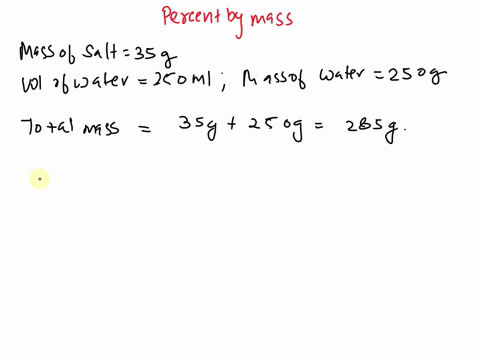 Percent by mass
Mass of Salt = 35g
Vol of water = 250 ml ; Mass of water = 250g
Total mass = 35g + 250g = 285g.